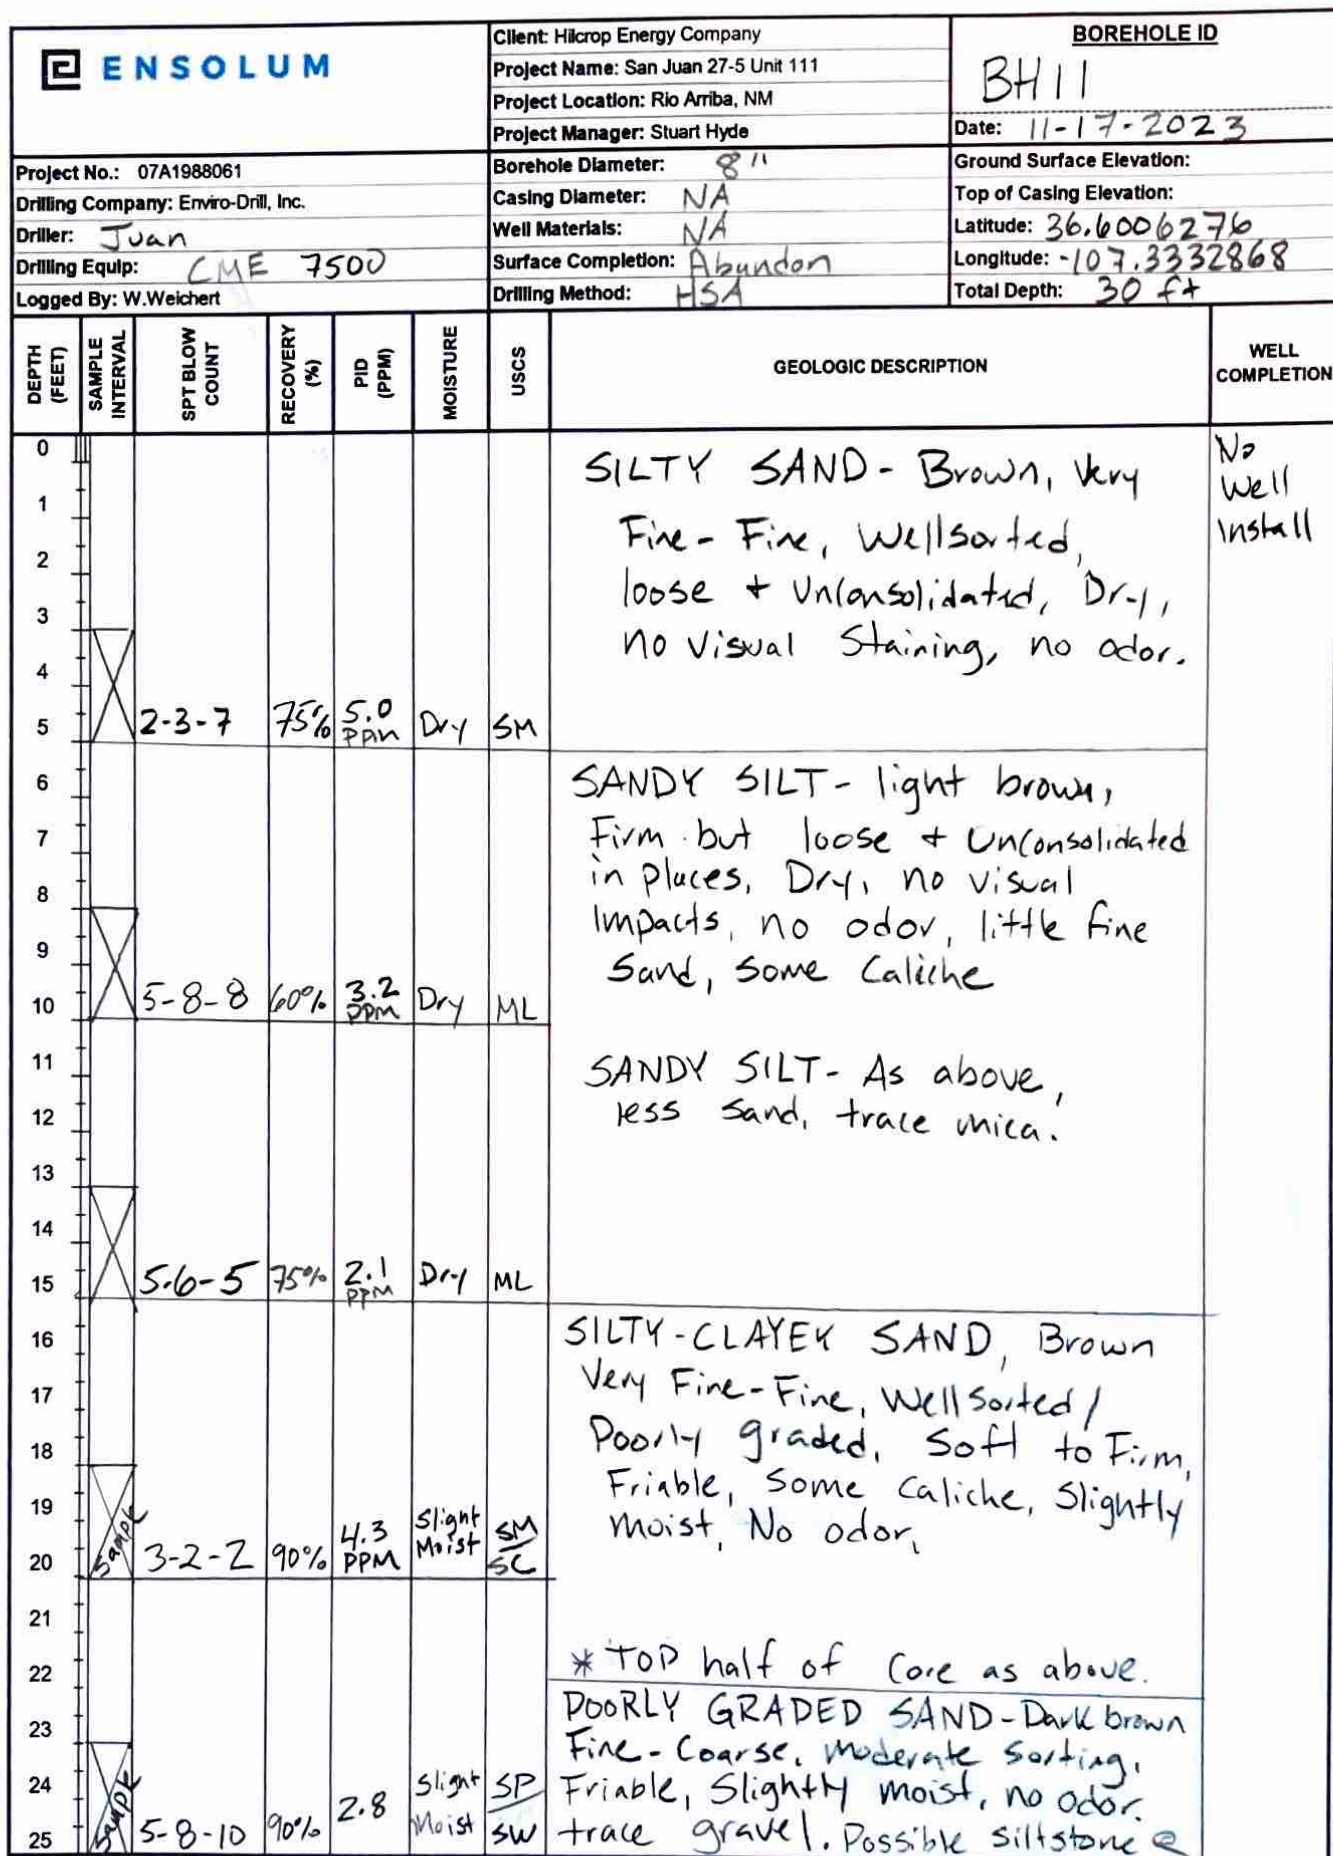 ENSOLUM
Client: Hilcrop Energy Company
Project Name: San Juan 27-5 Unit 111
Project Location: Rio Arriba, NM
Project Manager: Stuart Hyde
BOREHOLE ID
BH11
Date: 11-17-2023
Project No.: 07A1988061
Drilling Company: Enviro-Drill, Inc.
Driller: Juan
Drilling Equip: CME 7500
Logged By: W.Weichert
Borehole Diameter: 8"
Casing Diameter: NA
Well Materials: NA
Surface Completion: Abandon
Drilling Method: HSA
Ground Surface Elevation:
Top of Casing Elevation:
Latitude: 36.6006276
Longitude: -107.3332868
Total Depth: 30 ft
DEPTH (FEET)
SAMPLE INTERVAL
SPT BLOW COUNT
RECOVERY (%)
PID (PPM)
MOISTURE
USCS
GEOLOGIC DESCRIPTION
WELL COMPLETION
0
1
2
3
4
5
2-3-7 75% 5.0 ppm Dry SM
SILTY SAND - Brown, Very
Fine - Fine, Well sorted,
loose + Unconsolidated, Dry,
no Visual Staining, no odor.
No
Well
Install
6
7
8
9
10
5-8-8 60% 3.2 ppm Dry ML
SANDY SILT - light brown,
Firm but loose + Unconsolidated
in places, Dry, no visual
Impacts, no odor, little fine
Sand, some Caliche
11
12
13
14
15
5-6-5 75% 2.1 ppm Dry ML
SANDY SILT - As above,
less sand, trace mica.
16
17
18
19
20
Sample 3-2-2 90% 4.3 PPM Slight Moist SM/SC
SILTY-CLAYEY SAND, Brown
Very Fine-Fine, Well Sorted/
Poorly graded, Soft to Firm,
Friable, Some Caliche, Slightly
moist, No odor,
21
22
23
24
25
Sample 5-8-10 90% 2.8 Slight Moist SP/SW
* TOP half of Core as above.
POORLY GRADED SAND-Dark brown
Fine-Coarse, moderate sorting,
Friable, Slightly moist, no odor.
trace gravel. Possible siltstone @